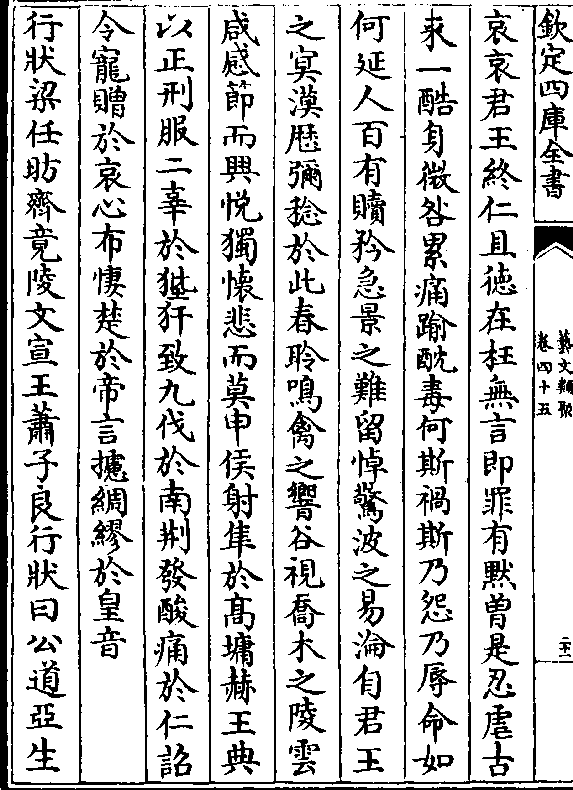 欽定四庫全書
藝文類聚
卷四十五
二十二
哀哀君王終仁且徳在枉無言即罪有黙曽是忍虐古
来一酷身微咎累痛踰酖毒何斯禍斯乃怨乃辱命如
何延人百有贖矜急景之難留悼驚波之易淪自君王
之㝠漠厯彌稔於此春聆鳴禽之響谷視喬木之陵雲
咸感節而興悦獨懐悲而莫申俟射隼於髙墉赫王典
以正刑服二辜於狴犴致九伐於南荆發酸痛於仁詔
令寵贈於哀心布悽楚於帝言攄綢繆於皇音
行狀梁任昉齊竟陵文宣王蕭子良行狀曰公道亞生